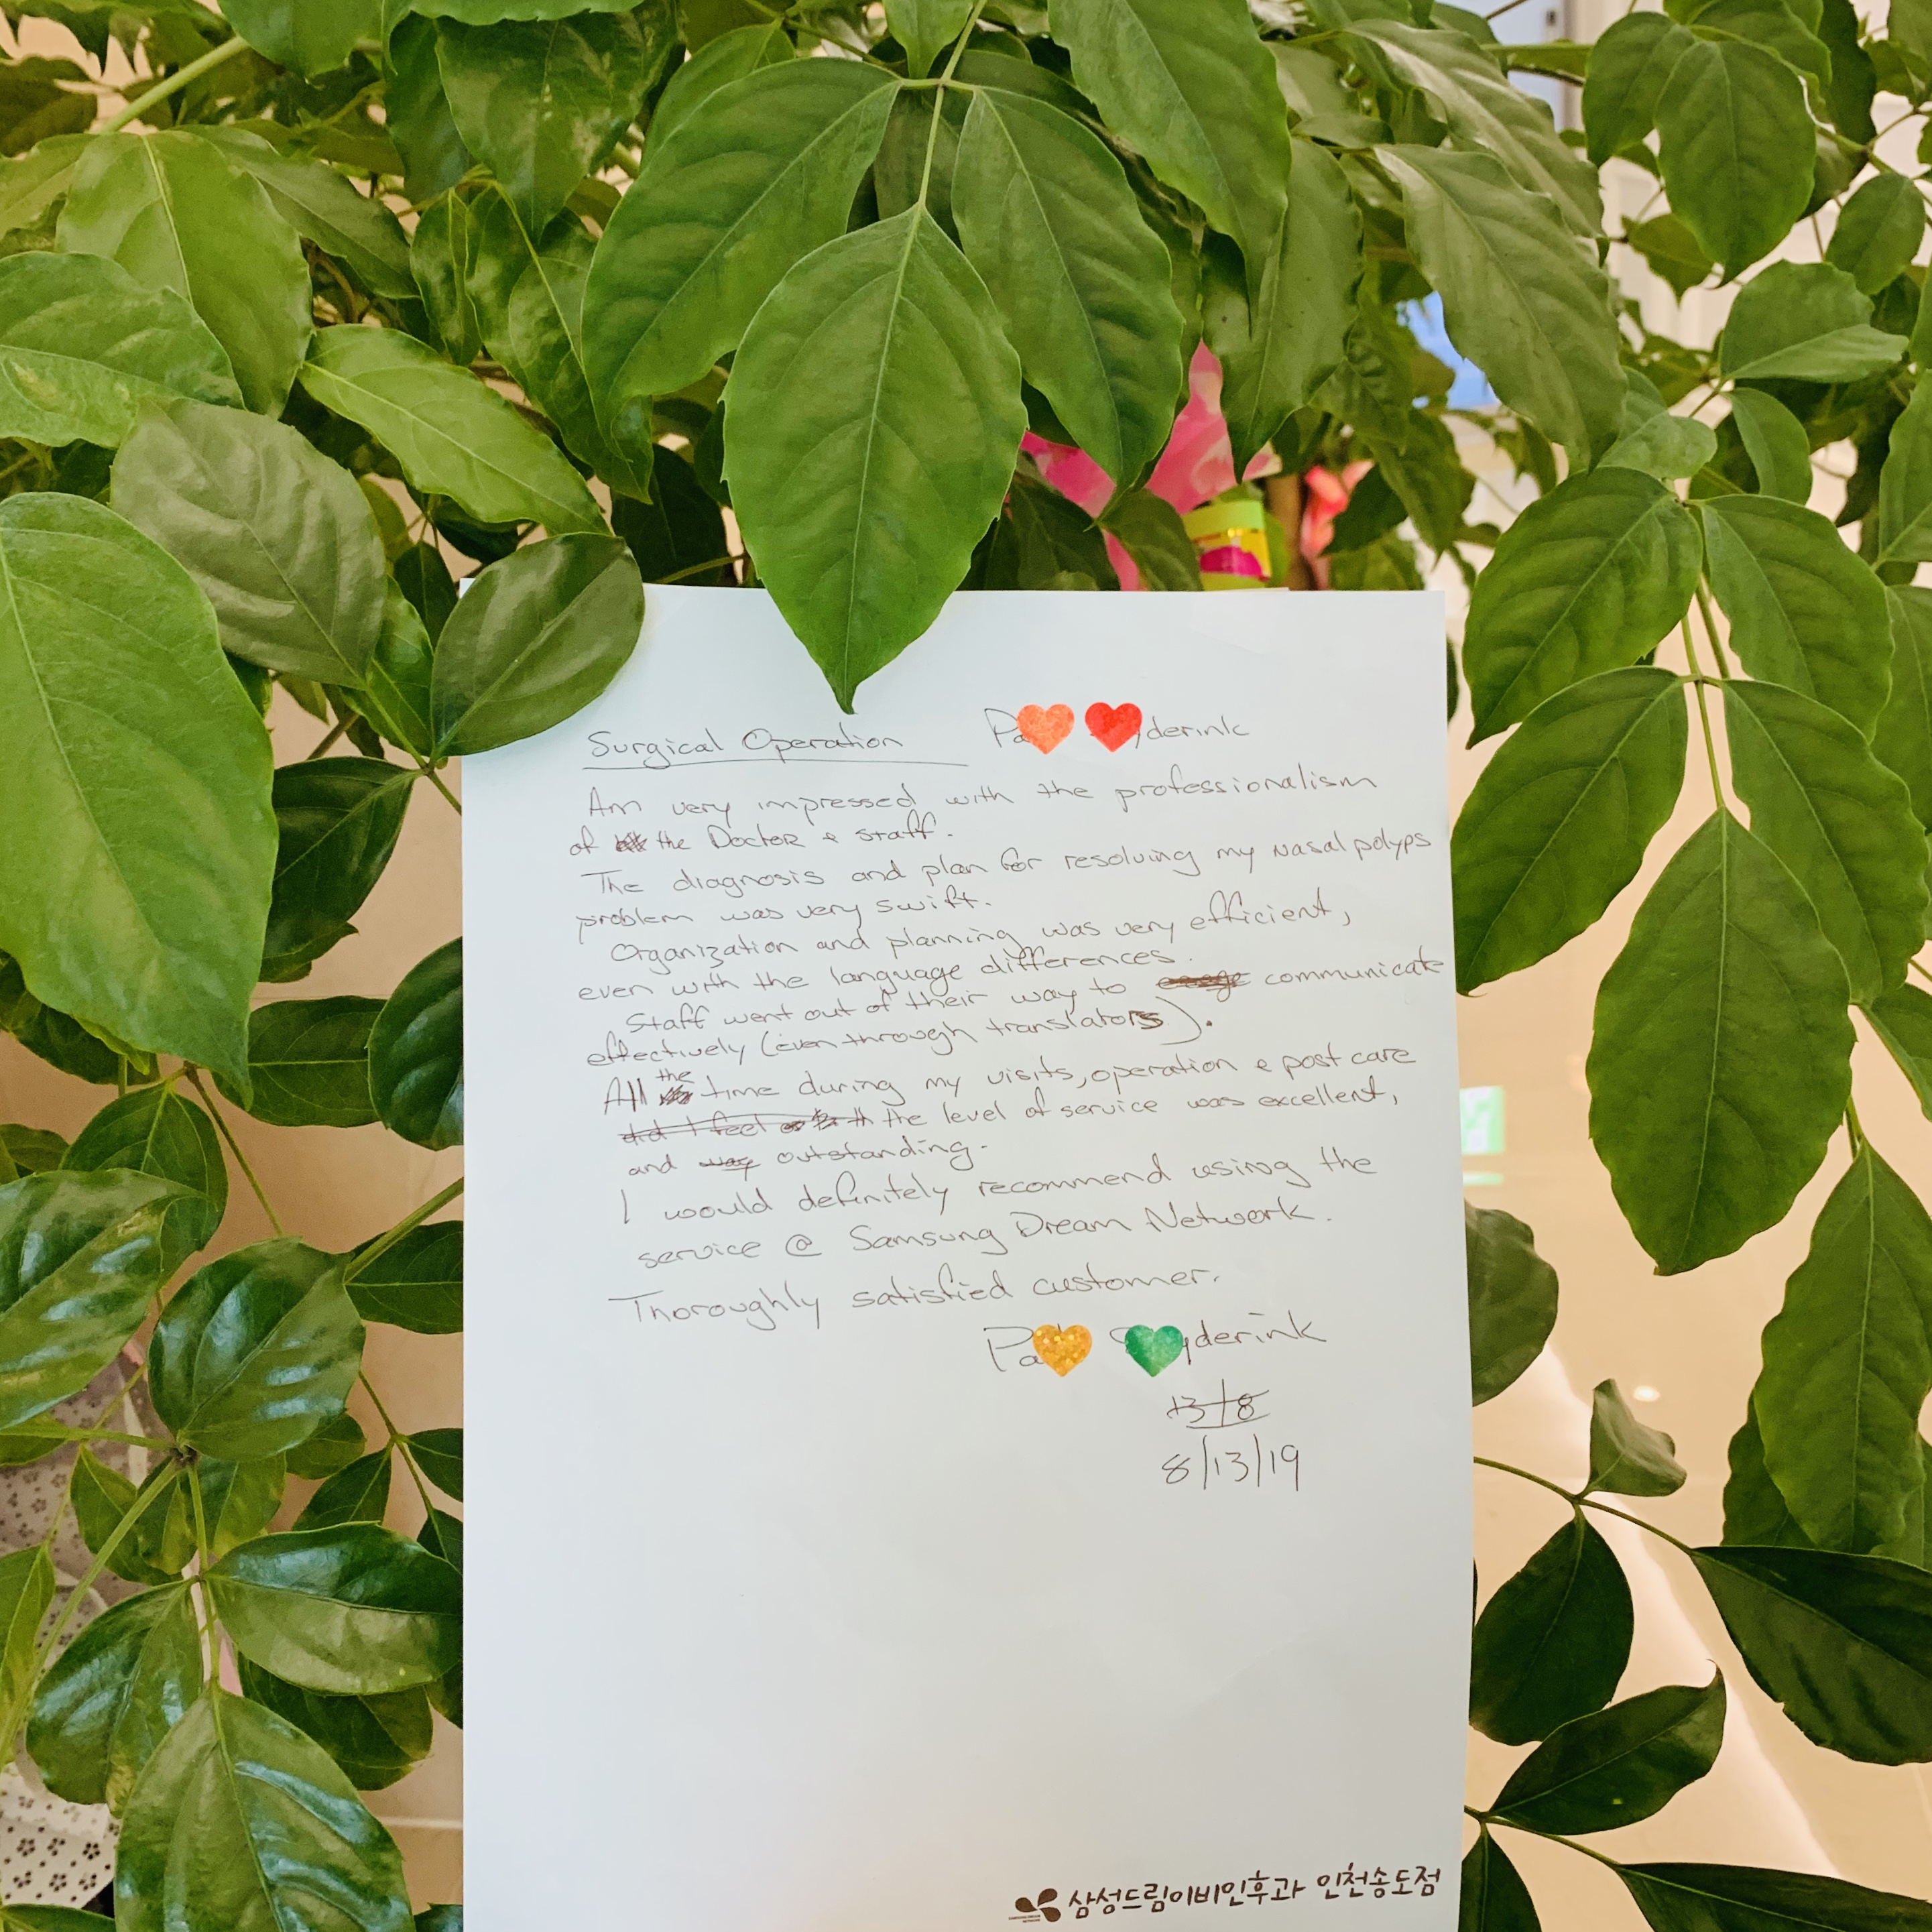 Surgical Operation Pa derink
Am very impressed with the professionalism
of the Doctor & staff.
The diagnosis and plan for resolving my nasal polyps
problem was very swift.
Organization and planning was very efficient,
even with the language differences.
Staff went out of their way to communicate
effectively (even through translators).
All the time during my visits, operation & post care
did I feel the level of service was excellent,
and way outstanding.
I would definitely recommend using the
service @ Samsung Dream Network.
Thoroughly satisfied customer.
Pa yderink
13/8
8/13/19
삼성드림이비인후과 인천송도점